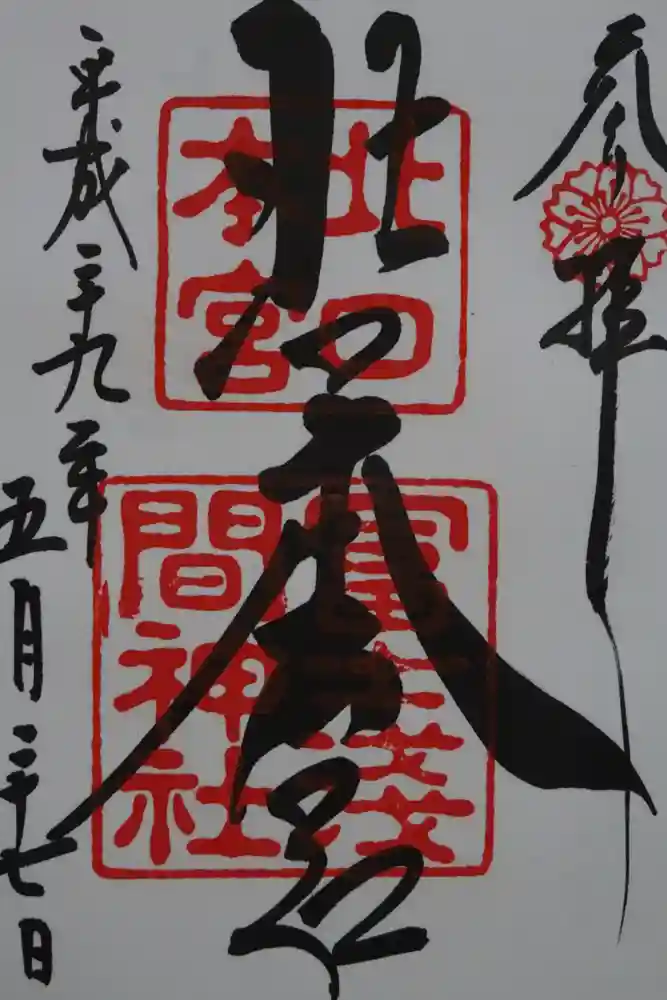 参拝
北口本宮
北口
本宮
冨士淺
間神社
平成二十九年
五月二十七日